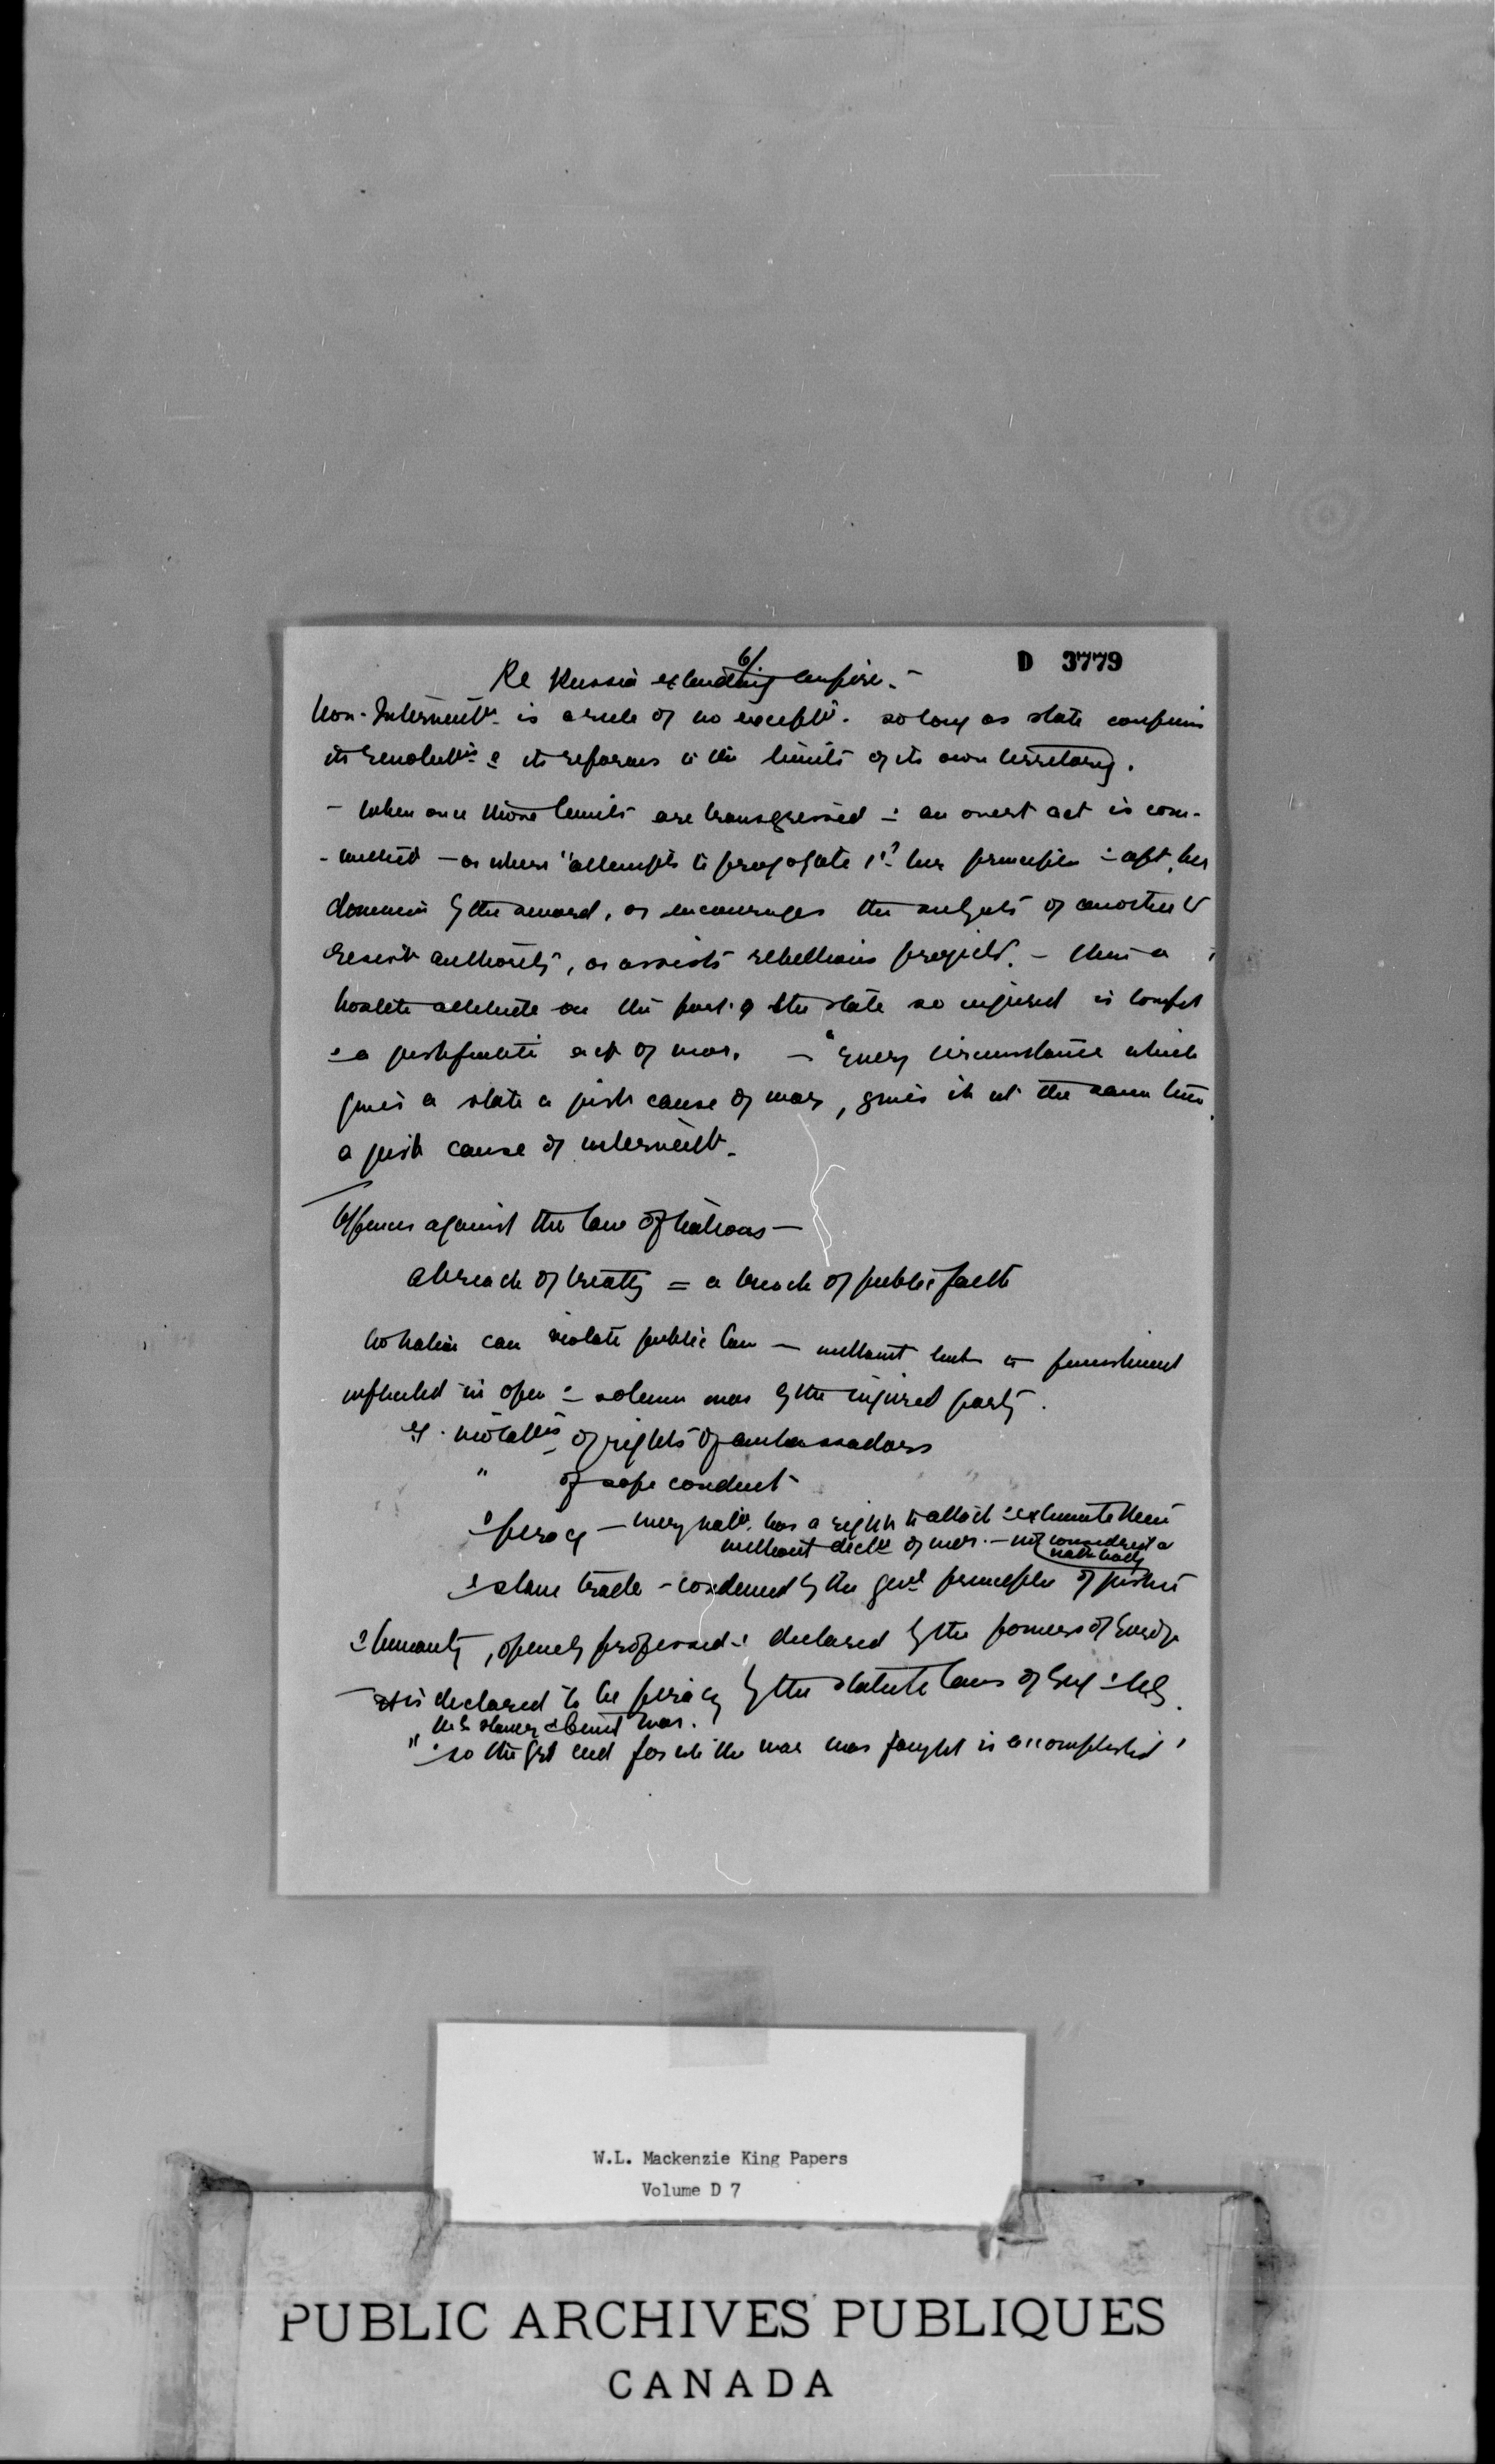 6/
D 3779
Re Russia extending empire. -
Non-Intervent⁻ is a rule of no except⁻. so long as state confines
its revolut⁻ & its reforms to the limits of its own territory.
- When once those limits are transgressed & an overt act is com-
- mitted - as where "attempts to propagate 1st her principles & aft. her
dominion by the sword, or encourages the subjects of another to
resist authority, or assists rebellious projects. - then a
hostile attitude on the part of the state so injured is
& a justifiable act of war. - "Every circumstance which
gives a state a just cause of war, gives it at the same time
a just cause of intervent⁻.
Offences against the law of Nations -
a breach of treaty = a breach of public faith
No nation can violate public law - without punishment
inflicted in open & solemn war by the injured party.
eg. violat⁻ of rights of ambassadors
" of safe conduct
& piracy - every nat⁻. has a right to attack & exterminate them
without decl⁻ of war. - not considered a
nat⁻
& slave trade - condemned by the genl principles of justice
& humanity, openly professed & declared by the powers of Europe
- It is declared to be piracy by the statute laws of Eng & U.S.
U.S. slavery & Civil War.
" & so the grt end for wh the war was fought is accomplished '
W.L. Mackenzie King Papers
Volume D 7
PUBLIC ARCHIVES PUBLIQUES
CANADA